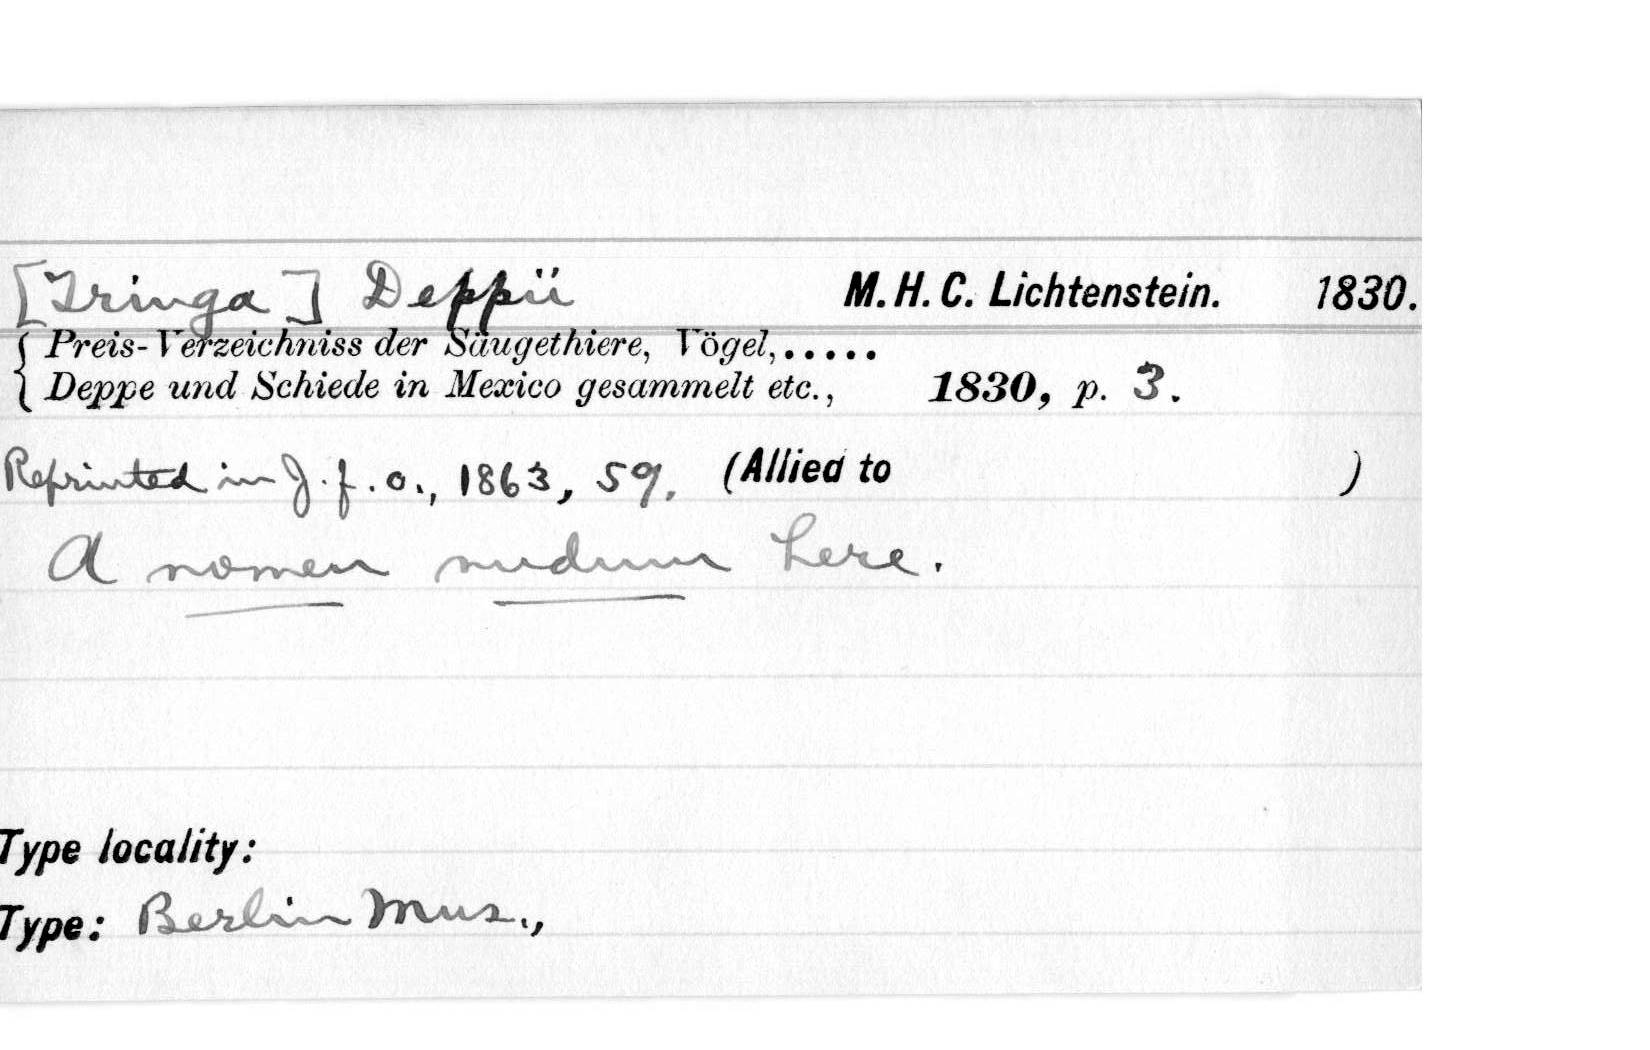 [Tringa] Deppii M. H. C. Lichtenstein. 1830.
Preis-Verzeichniss der Säugethiere, Vögel,.....
Deppe und Schiede in Mexico gesammelt etc., 1830, p. 3.
Reprinted in J. f. O., 1863, 59. (Allied to )
A nomen nudum here.
Type locality:
Type: Berlin Mus.,